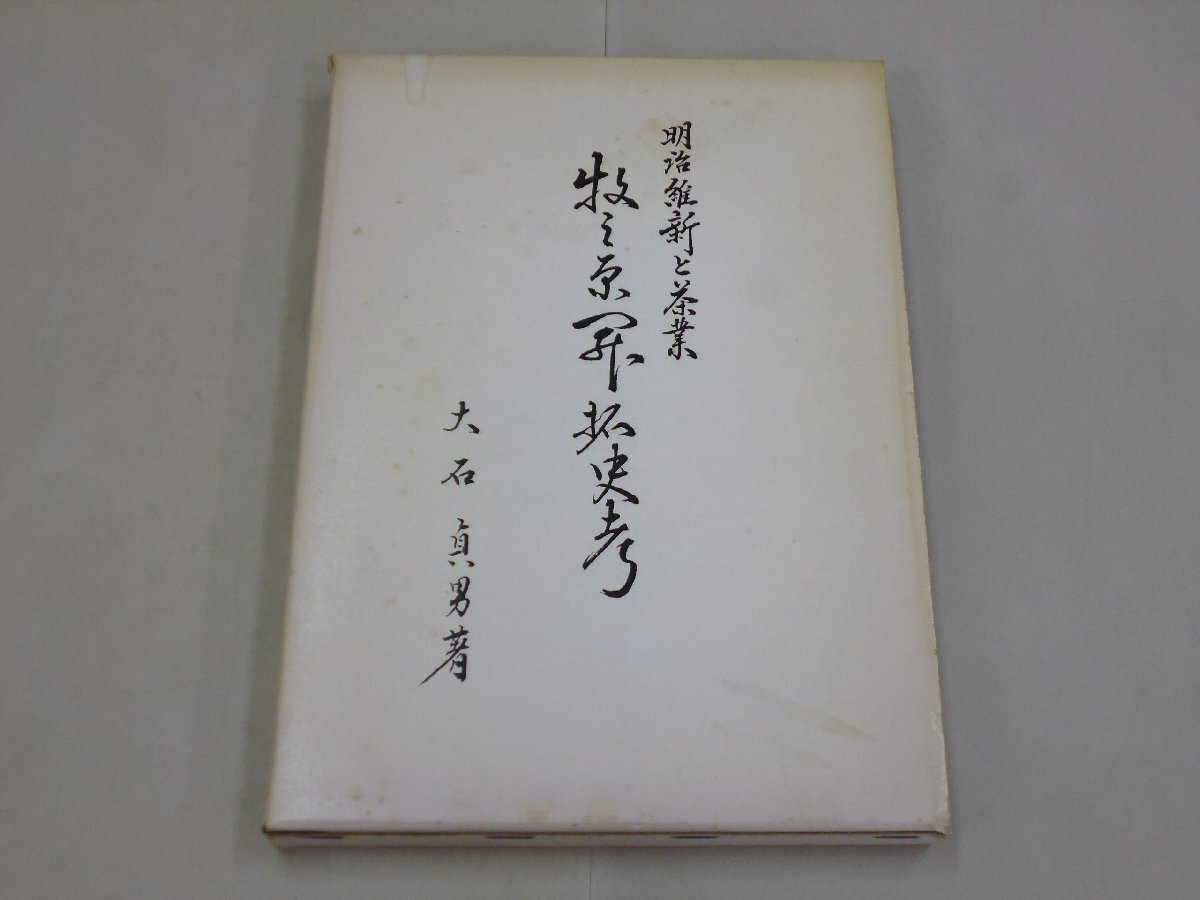 明治維新と茶業
牧之原開拓史考
大石貞男著